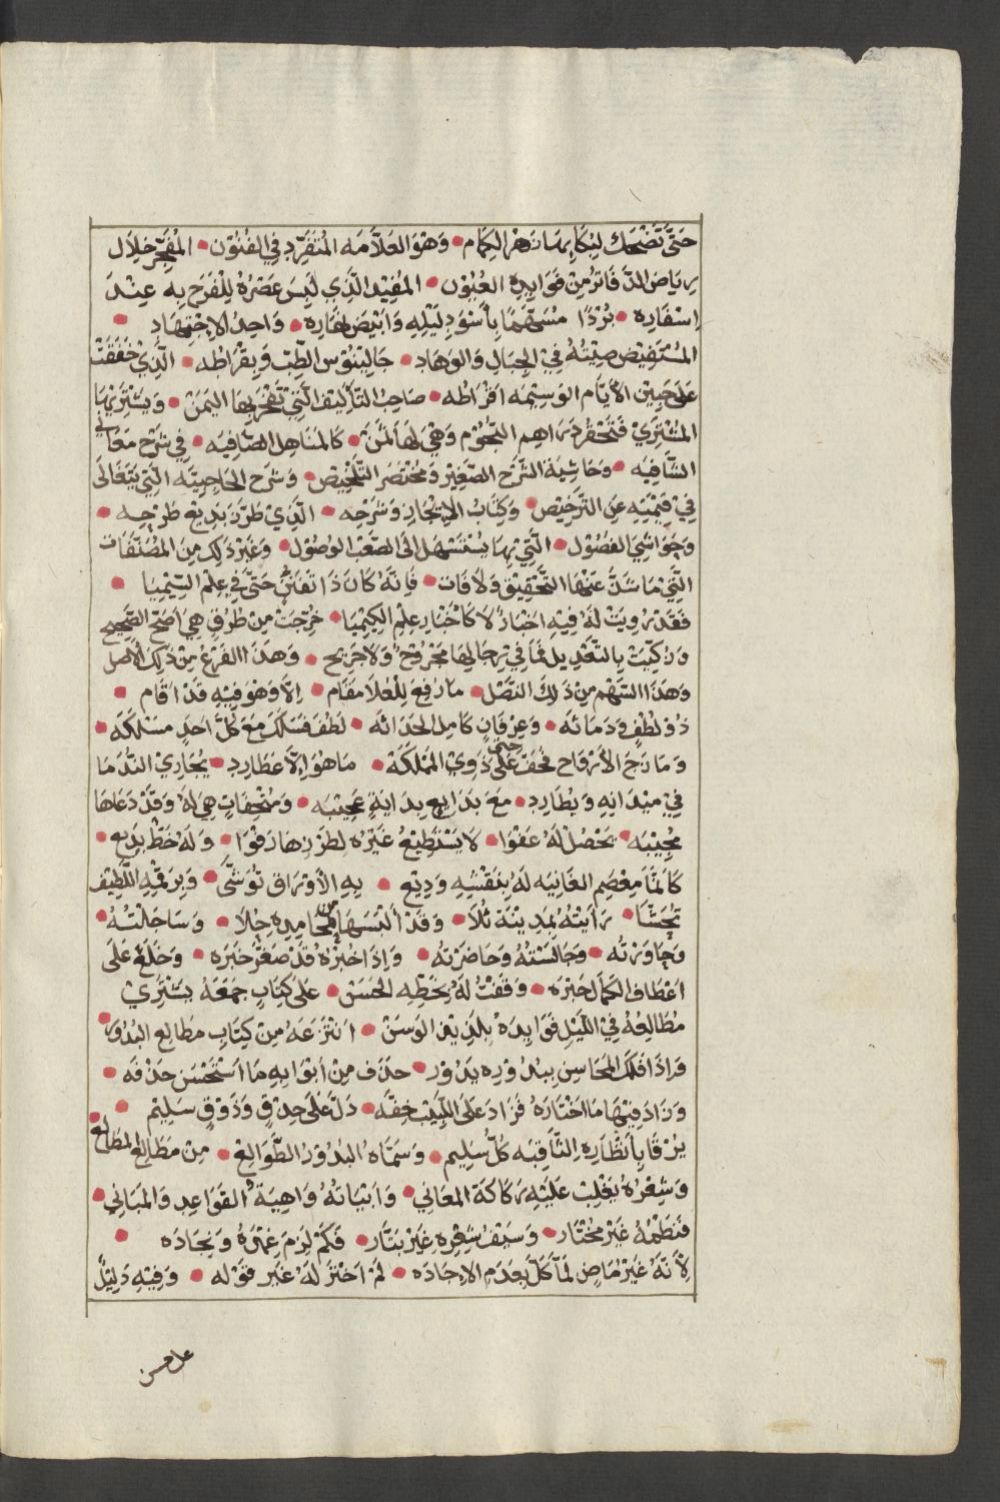 حَتَّى تَضْحَك لِبُكَائِهَا زهر الكِمَام • وَهْوَ العَلاَّمَه المُتَفَرِّد فِي الفُنُوْن • المُفَجِّر خِلَال
رِيَاض الدَّفَاتر مِنْ فَوَايِدِهِ العُيُوْن • المُفِيْد الَّذِي لَيْسَ عَصْرُهُ لِلْفَرَح بِه عِنْدَ
اِسْفَارِه • بُرْدًا مُسَهَّمًا بِأَسْوَدِ لَيْلِهِ وَابْيَض نَهَارِه • وَاحِدُ الاِجْتِهَادِ •
المُسْتَفِيْض صِيْتُهُ فِي الجِبَالِ وَالوِهَاد • جَالِيْنُوْس الطِّبّ وَبقْرَاطُه • الَّذِيْ خَفَقَتْ
عَلَى جَبِيْن الأَيَّام الوَسِيْمَه اَقْرَاطُه • صَاحِبُ التَآلِيْف الَّتِيْ تَفْخَر بِهَا اليَمَنْ • وَيَشْتَرِيْهَا
المُشْتَرِيْ فَتحْقُر دَرَاهِم النّجُوْم وَهْيَ لَهَا ثَمَنْ • كَالمَنَاهِل الصَّافِيَه • فِي شَرْح مَعَانِي
الشَّافِيَه • وَحَاشِيَة الشَّرْح الصَّغِيْر وَمُخْتَصَر التَّلْخِيْص • وَشَرْح الحَاجِبِيَّه الَّتِيْ يَتَغَالَى
فِيْ قِيْمَتِهِ عَنِ التَّرْخِيْص • وَكِتَابُ الاِيْجَاز وَشَرْحِه • الَّذِي طَرَّزَ بَدِيْعَ طَرْحِه •
وَحَوَاشِي الفصُوْل • الَّتِيْ بِهَا يُسْتَسْهَل الَى الصَّعْب الوُصُوْل • وَغَيْر ذَلِكَ مِنَ المُصَنَّفَات
الَّتِيْ مَا شَذَّ عَنْهَا التَّحْقِيْق وَلَا فَات • فَاِنَّهُ كَانَ ذَا تَفَنُّنٍ حَتَّى فِي عِلْم السِّيْمِيَا •
فَقَدْ رُوِيَتْ لَهُ فِيْهِ اَخْبَارٌ لَا كَاَخْبَارِ عِلْم الكِيْمْيَا • خُرِّجَتْ مِنْ طُرُقٍ هِيَ أَصَحّ الصَّحِيْح
وَزُكِّيَتْ بِالتَّعْدِيل فَمَا فِيْ رِجَالِهَا مَجْرُوحٌ وَلَا جَرِيْح • وَهَذَا الفَرْعُ مِنْ ذَلِكَ الأَصْل
وَهَذَا السَّهْم مِنْ ذَلِكَ النَّصْل • مَا رُفِعَ لِلْعُلَا مَقَام • اِلاَّ وَهْوَ فِيْهِ قَدْ اَقَام •
ذُوْ لُطْفٍ وَدَمَاثَه • وَعِرْفَانٍ كَامِل الحَدَاثَه • لَطُفَ فَسَلَكَ مَعَ كُلِّ اَحَدٍ مَسْلَكَهْ •
وَمَازَجَ الأَرْوَاح فَخَفَّ حتى عَلَى ذَوِيْ المَمْلَكَهْ • مَا هُوَ اِلاَّ عَطَارِد • يُجَارِيْ النُّدَمَا
فِيْ مَيْدَانِهِ وَيُطَارِد • مَعَ بَدَايِعِ بِدَايَةٍ عَجِيْبَه • وَمُتْحِفَاتٍ هِيَ لَهُ وَقَدْ دَعَاهَا
مُجِيْبَه • تَحْصُلُ لَهُ عَفْوًا • لَا يَسْتَطِيْعُ غَيْرُه لِطَرْزِهَا رَفْوًا • وَلَهُ خَطٌّ بَدِيْع •
كَانَّمَا مِعْصَم الغَانِيَه لَهُ بِنَقْشِهِ وَدِيْع • بِهِ الأَوْرَاق تُوَشَّى • وَبِرَقْمِهِ اللَّطِيْف
تُحَشَّا • رَأَيْتُهُ بِمَدِيْنَة ثُلاَ • وَقَدْ أَلْبَسَهَا من مَحَامِدِهِ حُلاَ • وَسَاجَلْتُهُ •
وَجَاوَرْتُه • وَجَالَسْتُهُ وَحَاضَرْتُه • وَاِذَا خُبْرُهُ قَدْ صَغَّرَ خَبَرَه • وَخَلَعَ عَلَى
اَعْطَاف الكَمَال حِبَرَه • وَقَفْتُ لَهُ بِخَطِّهِ الحَسَنْ • عَلَى كِتَابٍ جَمَعَهُ يَشْتَرِيْ
مُطَالِعُهُ فِي اللَّيْل فَوَايِدَهُ بِلَذِيْذ الوَسَنْ • اَنْتَزَعَهُ مِنْ كِتَابِ مَطَالِع البُدُوْر •
فَاِذَا فَلَكُ المَحَاسِن بِبُدُوْرِهِ يَدُوْر • حَذَفَ مِنْ اَبْوَابِهِ مَا اَسْتَحْسَن حَذْفَه •
وَزَادَ فِيْهَا مَا اخْتَارَهُ فَزَادَ عَلَى اللَّبِيْب خِفَّه • دَلَّ عَلَى حِذْقٍ وَذَوْقٍ سَلِيْم •
يُرْقَا بِاَنْظَارِهِ الثَّاقِبَه كُلُّ سَلِيْم • وَسَمَّاه البُدُوْرُ الطَّوَالِعْ • مِنْ مَطَالِعِ المَطَالِعْ •
وَشِعْرُهُ يَغْلِبُ عَلَيْهِ رَكَاكَة المَعَانِي • وَاَبْيَاتُهُ وَاهِيَةُ القَوَاعِد وَالمَبَانِي •
فَنَظْمُهُ غَيْر مُخْتَار • وَسَيْفُ شِعْرِهِ غَيْرُ بَتَّار • فَكَمْ لَزِمَ غِمْدَهُ وَنِجَادَه •
لِأَنَّهُ غَيْرُ مَاضٍ لَمَّا كَلَّ بِعَدَم الاِجَادَه • لَمْ اَخْتَرْ لَهُ غَيْر قَوْله • وَفِيْهِ دَلِيْلٌ
على حسن